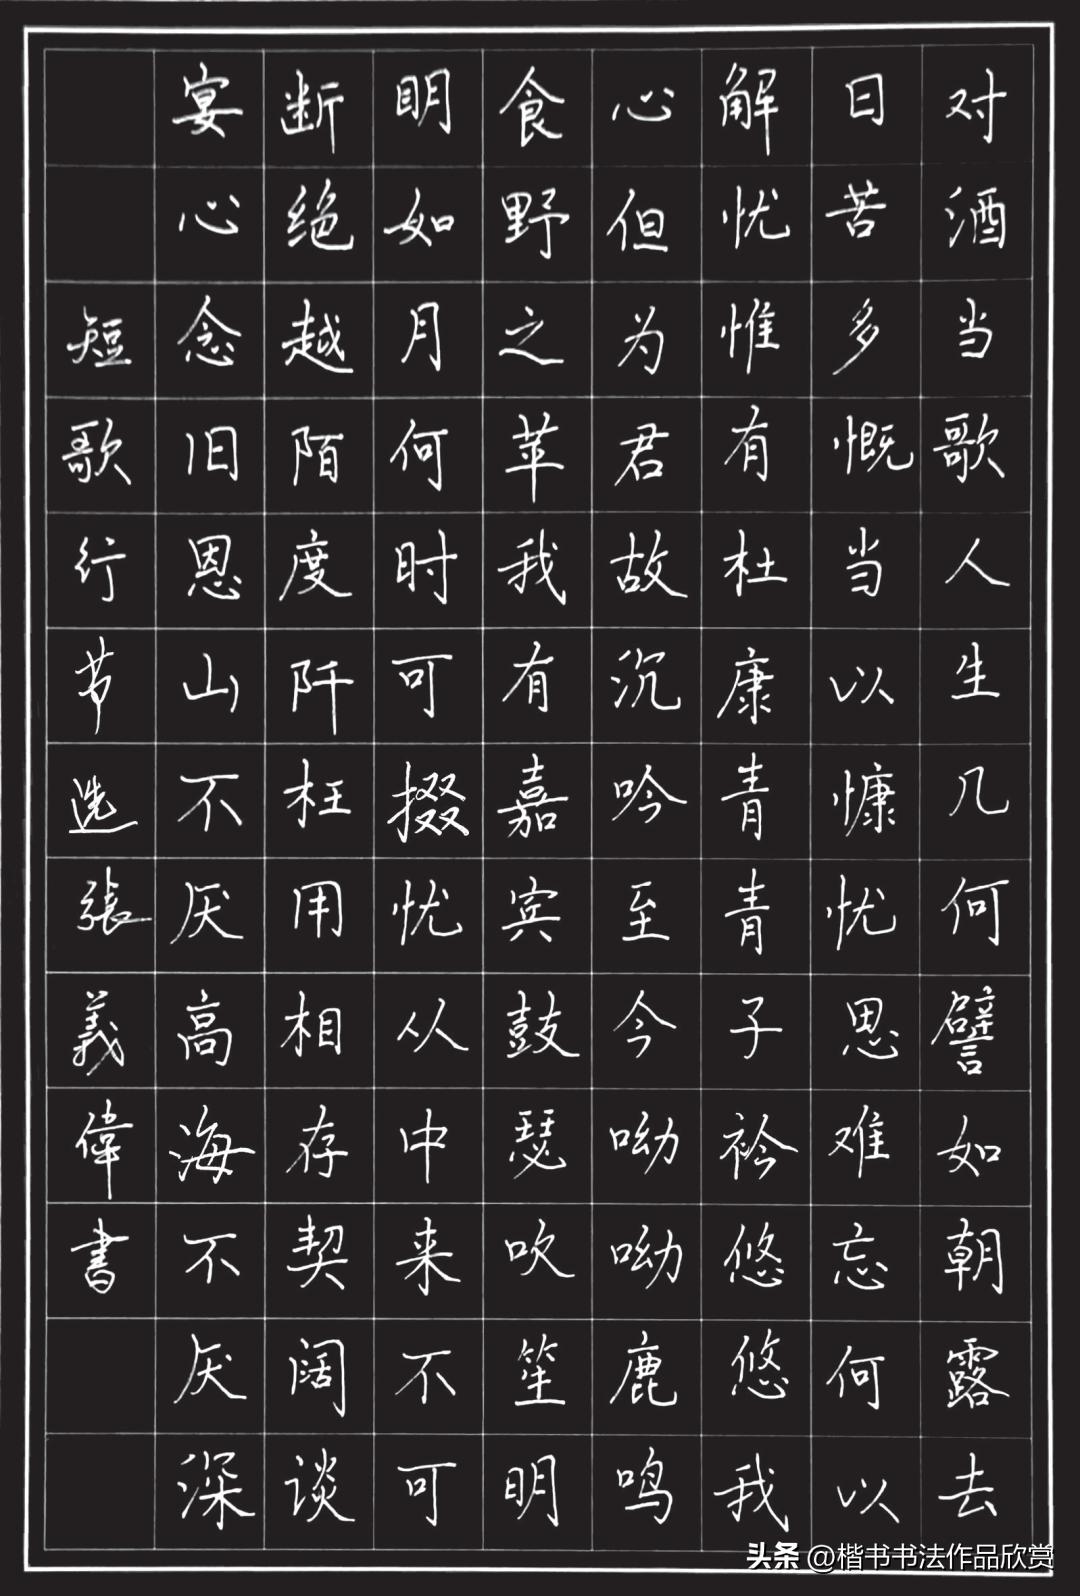 对酒当歌人生几何譬如朝露去
日苦多慨当以慷忧思难忘何以
解忧惟有杜康青青子衿悠悠我
心但为君故沉吟至今呦呦鹿鸣
食野之苹我有嘉宾鼓瑟吹笙明
明如月何时可掇忧从中来不可
断绝越陌度阡枉用相存契阔谈
宴心念旧恩山不厌高海不厌深
短歌行节选張義偉書
头条 @楷书书法作品欣赏